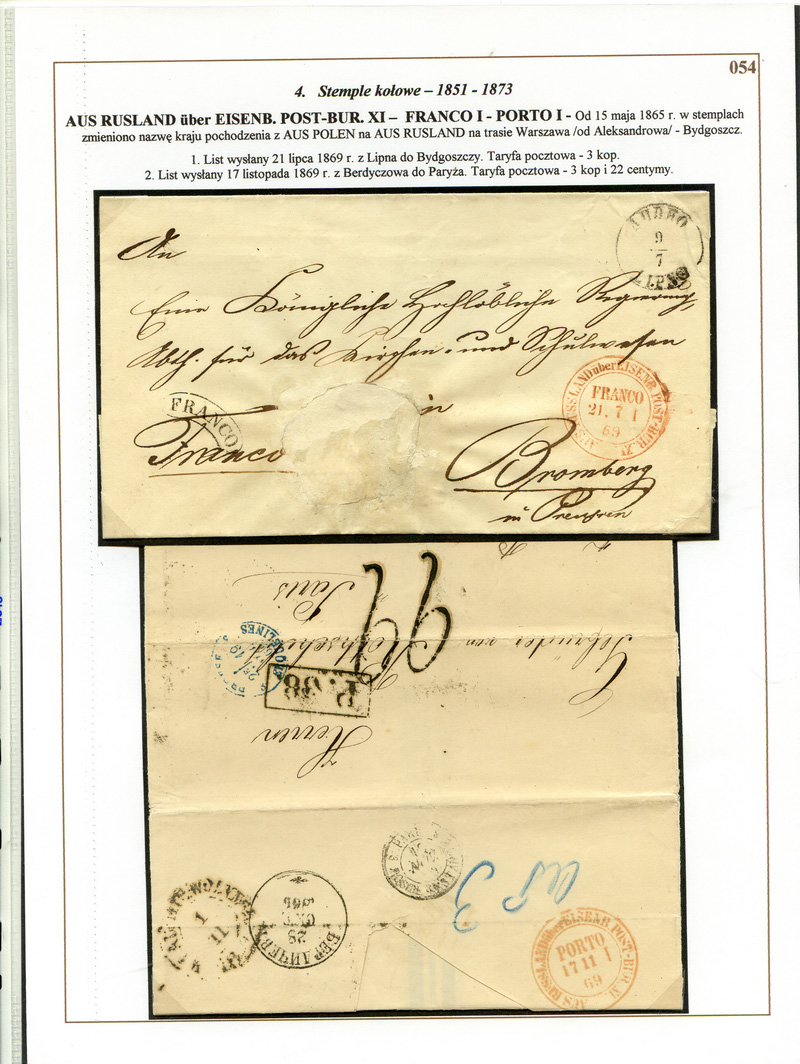 054
4. Stemple kołowe – 1851 - 1873
AUS RUSLAND über EISENB. POST-BUR. XI – FRANCO I - PORTO I - Od 15 maja 1865 r. w stemplach
zmieniono nazwę kraju pochodzenia z AUS POLEN na AUS RUSLAND na trasie Warszawa /od Aleksandrowa/ - Bydgoszcz.
1. List wysłany 21 lipca 1869 r. z Lipna do Bydgoszczy. Taryfa pocztowa - 3 kop.
2. List wysłany 17 listopada 1869 r. z Berdyczowa do Paryża. Taryfa pocztowa - 3 kop i 22 centymy.
ЛИПНО
9
7
LIPNO
An
Eine Königliche Hochlöbliche Regierung,
Abth. für das Kirchen- und Schulwesen
in
AUS RUSSLAND über EISENB. POST-BUR. XI
FRANCO
21. 7 I
69
FRANCO
Franco
Bromberg
in Preussen
Paris
Gebrüder von Rothschild
Herren
P. 38
БЕРДИЧЕВЪ
28
ОКТ
1
11
AUS RUSSLAND über EISENB. POST-BUR. XI
PORTO
17 11 I
69